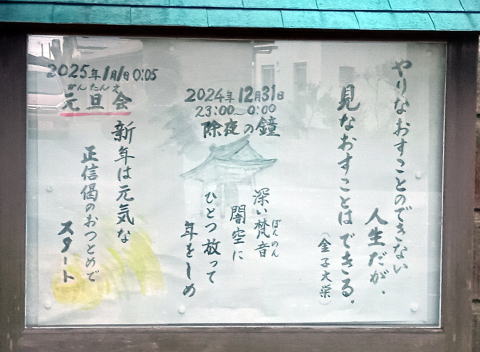 やりなおすことのできない
人生だが、
見なおすことはできる。
(金子大榮)
2024年12月31日
23:00〜0:00
除夜の鐘
深い梵音に
ぼんのん
闇空に
ひとつ放って
年をしめ
2025年1月1日0:05
がんたんえ
元旦会
新年は元気な
正信偈のおつとめで
スタート